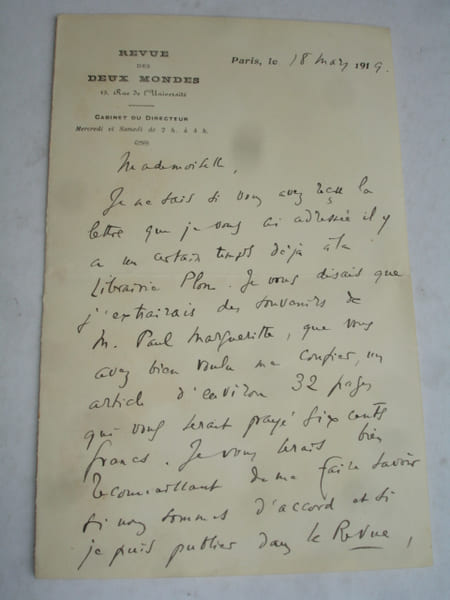 REVUE
DES
DEUX MONDES
15, Rue de l'Université
CABINET DU DIRECTEUR
Mercredi et Samedi de 2 h. à 4 h.
Paris, le 18 mars 1919.
Mademoiselle,
Je ne sais si vous avez reçu la
lettre que je vous ai adressée il y
a un certain temps déjà à la
Librairie Plon. Je vous disais que
j'extrairais des souvenirs de
M. Paul Margueritte, que vous
avez bien voulu me confier, un
article d'environ 32 pages
qui vous serait payé six cents
francs. Je vous serais bien
reconnaissant de me faire savoir
si nous sommes d'accord et si
je puis publier dans la Revue,